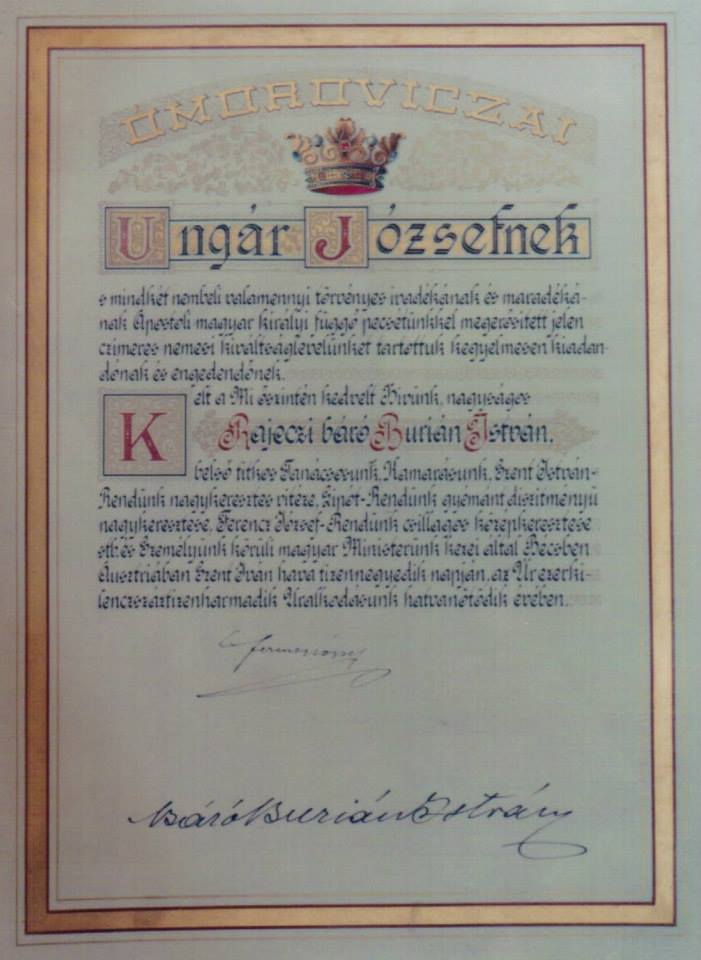 ÓMOROVICZAI
Ungár Józsefnek
s mindkét nembeli valamennyi törvényes ivadékának és maradéká-
nak Apostoli magyar királyi függő pecsétünkkel megerősített jelen
czímeres nemesi kiváltságlevelünket tartottuk kegyelmesen kiadan-
dónak és engedendőnek.
Kelt a Mi őszintén kedvelt Hívünk, nagyságos
Rajeczi báró Burián István,
belső titkos Tanácsosunk, Kamarásunk, Szent István-
Rendünk nagykeresztes vitéze, Lipót-Rendünk gyémánt díszítményű
nagykeresztese, Ferencz József-Rendünk csillagos középkeresztese
stb. és Személyünk körüli magyar Ministerünk kezei által Bécsben
Ausztriában Szent Iván hava tizennegyedik napján, az Úr ezerki-
lenczszáztizenharmadik Uralkodásunk hatvanötödik évében.
Ferencz József
Báró Burián István